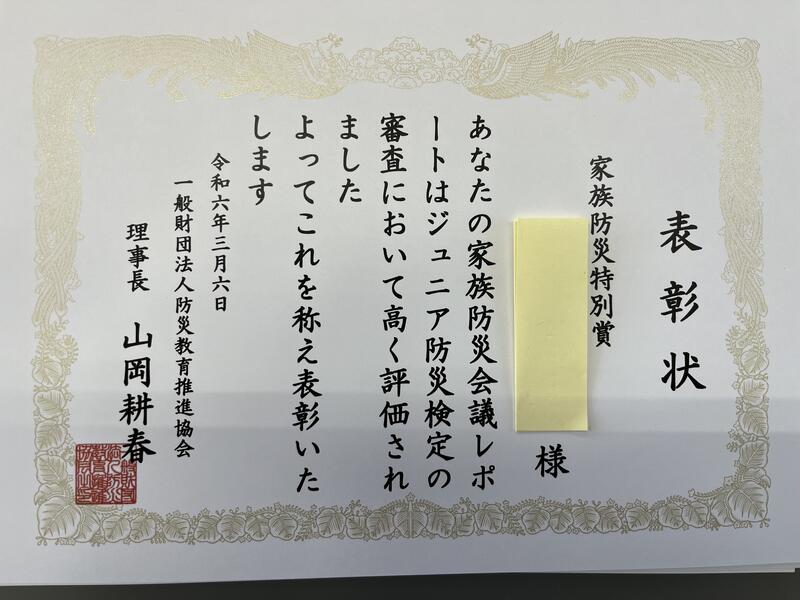 表彰状
家族防災特別賞
様
あなたの家族防災会議レポ
ートはジュニア防災検定の
審査において高く評価され
ました
よってこれを称え表彰いた
します
令和六年三月六日
一般財団法人防災教育推進協会
理事長 山岡耕春